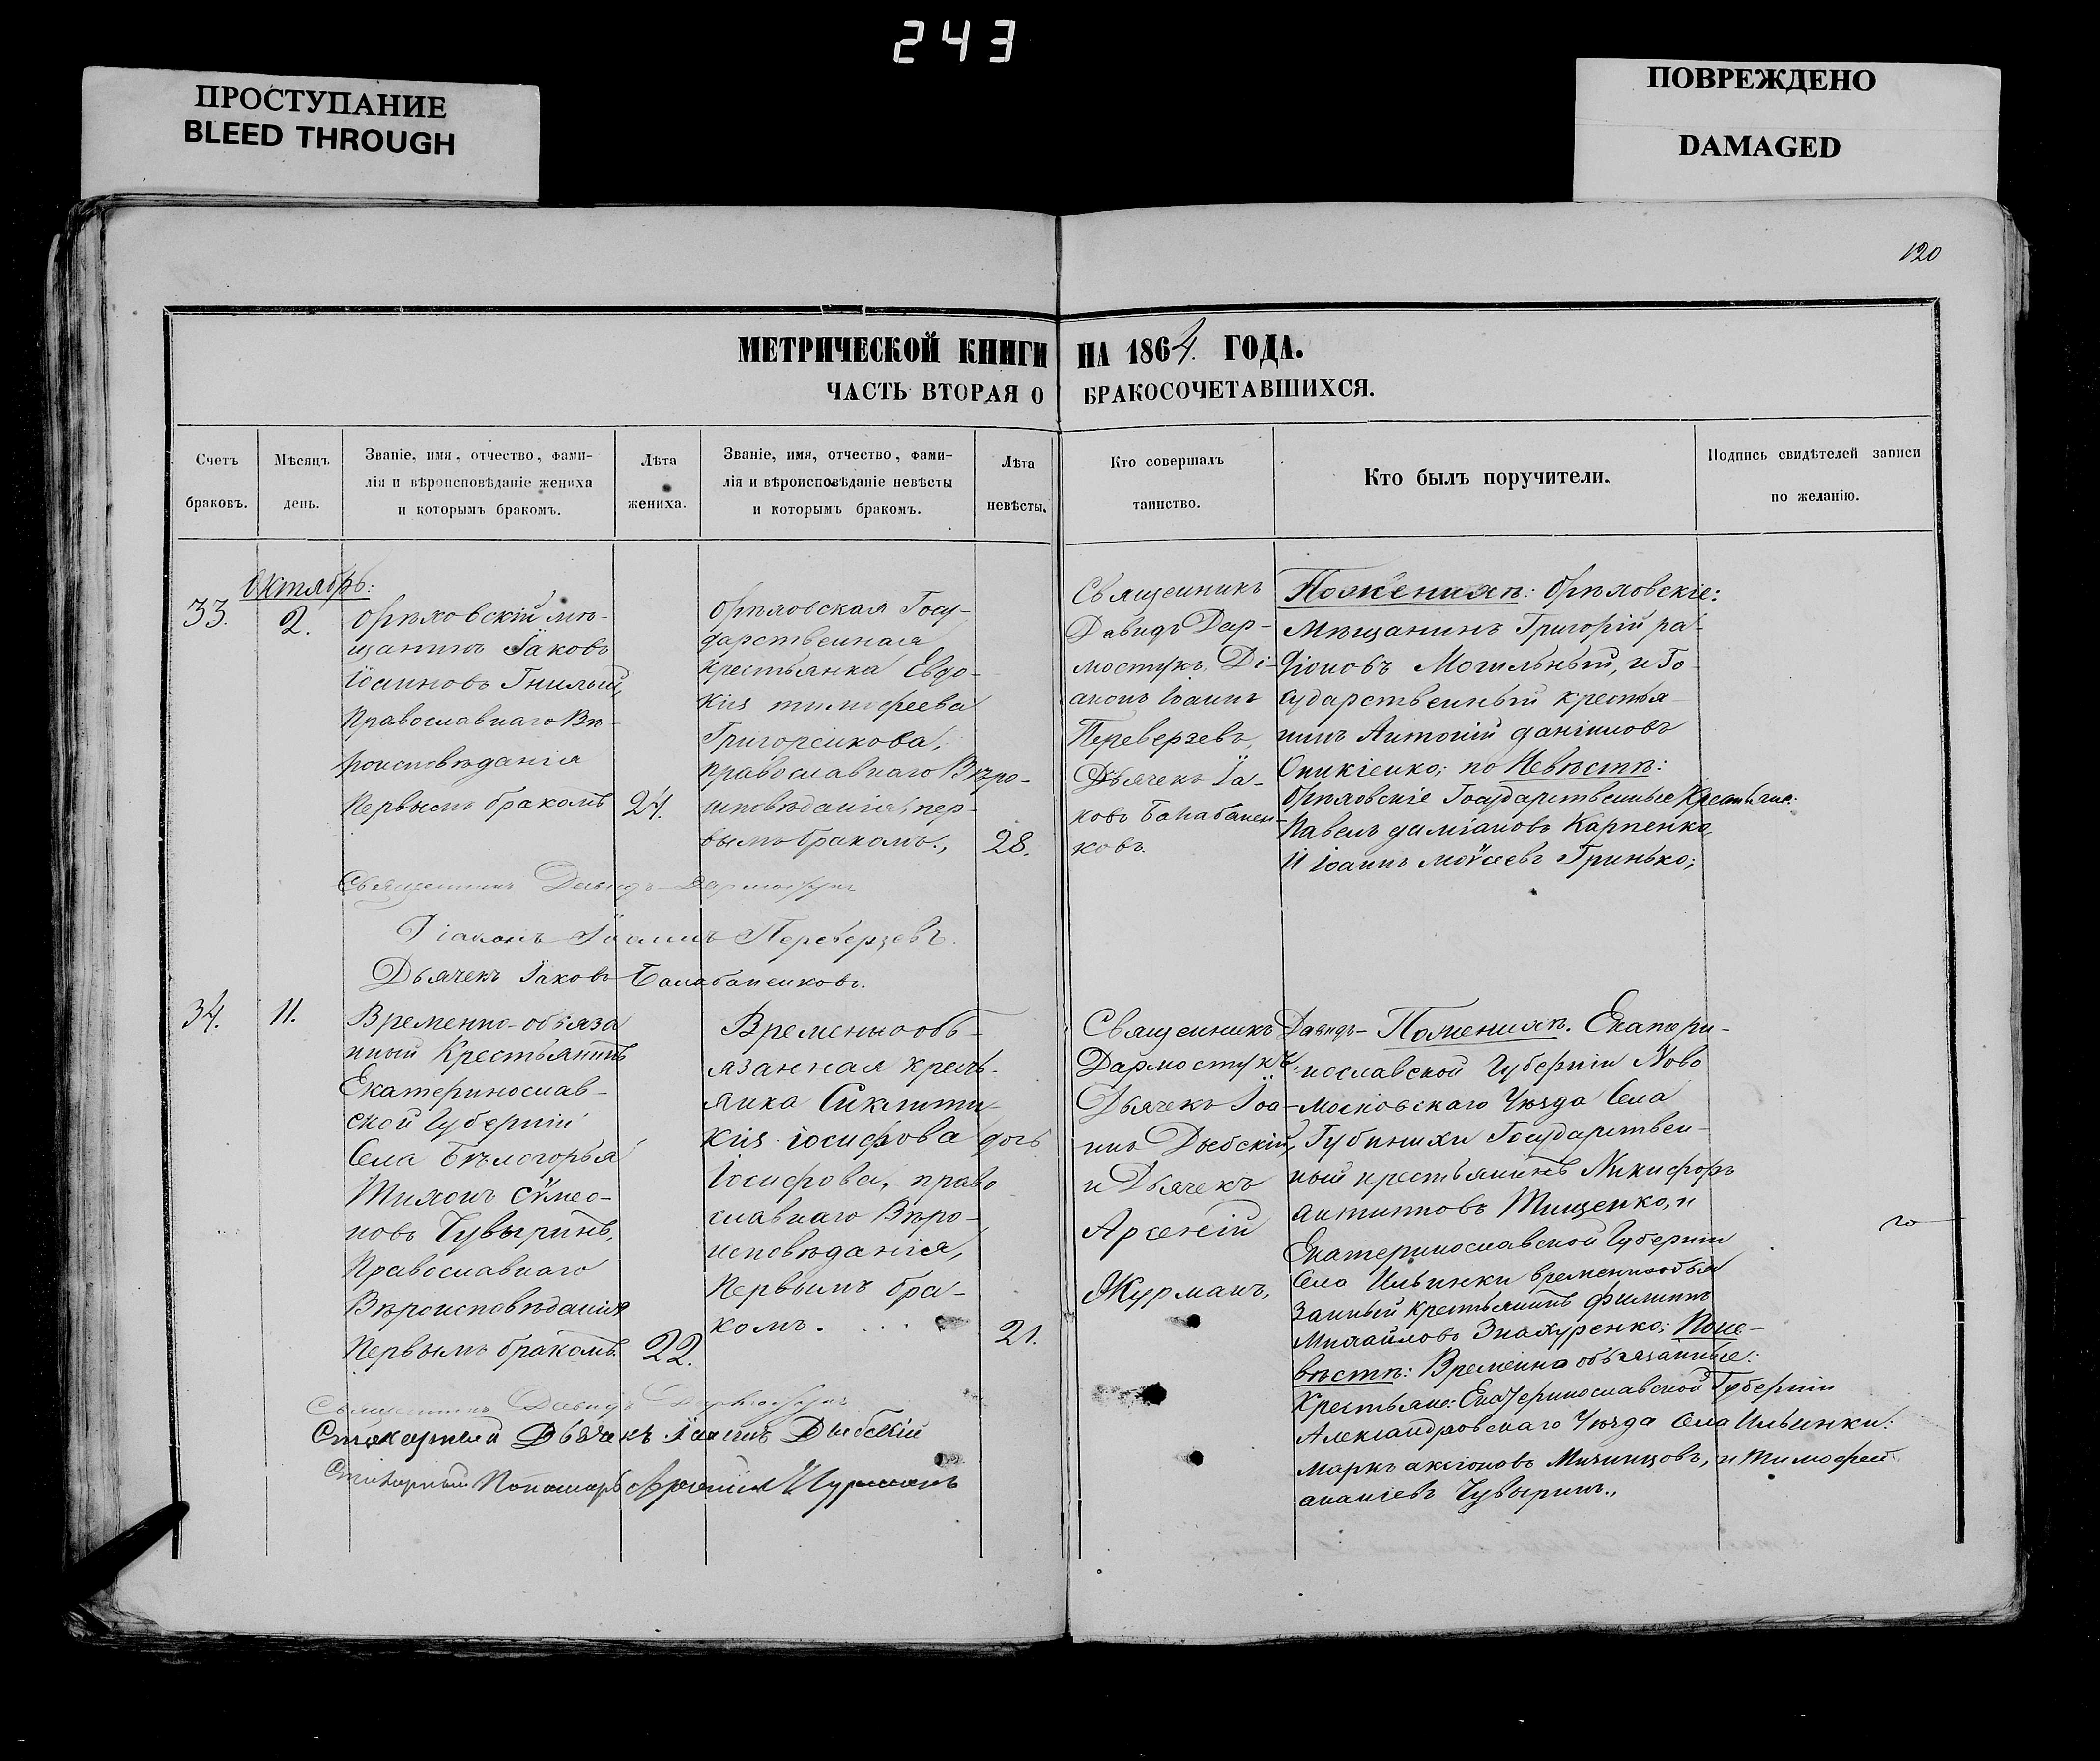 243
ПРОСТУПАНИЕ
BLEED THROUGH
ПОВРЕЖДЕНО
DAMAGED
120
МЕТРИЧЕСКОЙ КНИГИ НА 1864. ГОДА.
ЧАСТЬ ВТОРАЯ О БРАКОСОЧЕТАВШИХСЯ.
Счетъ
браковъ.
Мѣсяцъ
день.
Званіе, имя, отчество, фами-
лія и вѣроисповѣданіе жениха
и которымъ бракомъ.
Лѣта
жениха.
Званіе, имя, отчество, фами-
лія и вѣроисповѣданіе невѣсты
и которымъ бракомъ.
Лѣта
невѣсты.
Кто совершалъ
таинство.
Кто былъ поручители.
Подпись свидѣтелей записи
по желанію.
Октябрь:
33.
2.
Орѣховскій мѣ-
щанинъ Іаковъ
Іоанновъ Гнилый,
Православнаго Вѣ-
роисповѣданія
Первымъ бракомъ
24.
Орѣховская Госу-
дарственная
крестьянка Евдо-
кія тимофеева
Григоренкова,
православнаго Вѣро-
исповѣданія, пер-
вымъ бракомъ.,
28.
Священникъ
Давидъ Дар-
мостукъ, Ді-
аконъ Іоаннъ
Переверзевъ,
Дьячекъ Іа-
ковъ Балабанен-
ковъ.
Поженихѣ: Орѣховскіе:
Мѣщанинъ Григорій ра-
діоновъ Могильный, и Го-
сударственный крестья-
нинъ Антоній даніиловъ
Оникіенко; по Невѣстѣ:
Орѣховскіе Государственные Крестьяне:
Павелъ даміановъ Карпенко
И Іоаннъ моѵсеевъ Гринько;
Священникъ Давидъ Дармостукъ
Діаконъ Іоаннъ Переверзевъ.
Дьячекъ Іаковъ Балабаненковъ.
34.
11.
Временно-обяза
нный Крестьянинъ
Екатеринослав-
ской Губерніи
Села Бѣлогорья
Тихонъ Сѵмео-
новъ Чувыринъ,
Православнаго
Вѣроисповѣданія
Первымъ бракомъ.
22.
Временно объ-
язанная кресть-
янка
кія іосифова дочь
Іосифова, право
славнаго Вѣро-
исповѣданія,
Первымъ бра-
комъ. . . .
21.
Священникъ Давидъ
Дармостукъ,
Дьячекъ Іоа-
ннъ Дыбскій,
и Дьячекъ
Арсеній
Журманъ,
Поженихѣ. Екатери-
нославской Губерніи Ново
московскаго Уѣзда Села
Губинихи Государствен-
ный крестьянинъ Никифоръ
антиповъ Тищенко, и
Екатеринославской Губерніи
Села Ильинки временнообья
занный крестьянинъ Филиппъ
Михайловъ Знахуренко; Поне-
вѣстѣ: Временно обязанные:
Крестьяне: Екатеринославской Губерніи
Александровскаго Уѣзда Села Ильинки:
маркъ и Тимофей
ананіевъ Чувыринъ.,
Священникъ Давидъ Дармостукъ
Стихарный Дьячекъ Іоаннъ Дыбскій
Стихарный Пономарь Арсеній Журманъ